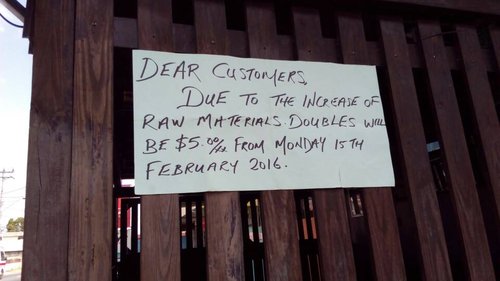 DEAR CUSTOMERS,
DUE TO THE INCREASE OF
RAW MATERIALS. DOUBLES WILL
BE $5.00 FROM MONDAY 15TH
FEBRUARY 2016.